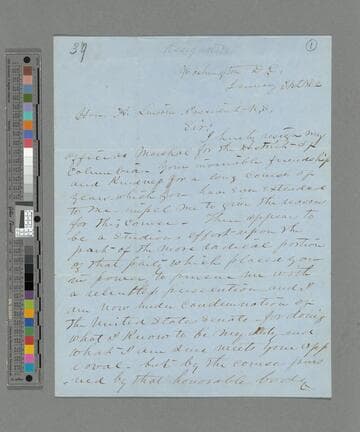 39
Resignation
1
Washington D.C.
January
Hon. A. Lincoln President U.S.
Sir:
I hereby resign my
office as Marshal for the District of
Columbia. Your invariable friendship
and kindness for a long course of
years which you have ever extended
to me impel me to give the reasons
for this course. There appears to
be a studious effort upon the
part of the more radical portion
of that party which placed you
in power to pursue me with
a relentless persecution and I
am now under condemnation of
the United States Senate for doing
what I know to be my duty and
what I am sure meets your app
roval but by the course purs
ued by that honorable body